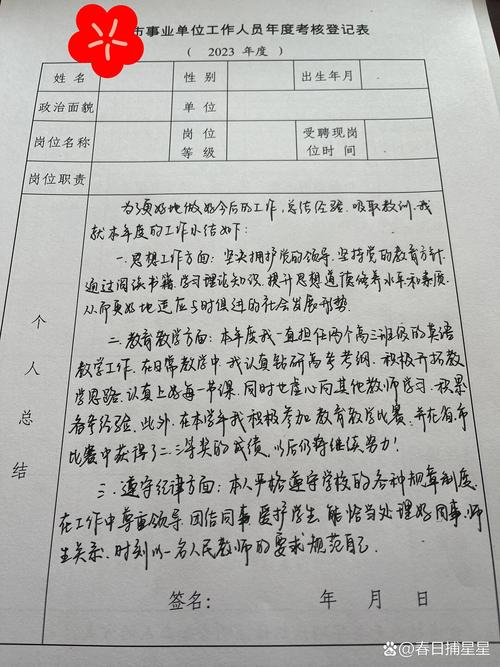 市事业单位工作人员年度考核登记表
( 2023 年度 )
姓名 性别 出生年月
政治面貌 单位
岗位名称 岗位等级 受聘现岗位时间
岗位职责
个人总结
为了更好地做好今后的工作,总结经验、吸取教训,我
就本年度的工作小结如下:
一.思想工作方面:坚决拥护党的领导,坚持党的教育方针
通过阅读书籍,学习理论知识,提升思想道德修养水平和素质,
从而更好地适应与时俱进的社会发展形势.
二.教育教学方面:本年度我一直担任两个高三班级的英语
教学工作.在日常教学中,我认真钻研高考考纲,积极开拓教
学思路,认真上好每一节课,同时也虚心向其他教师学习,积累
备考经验.此外,在本学年我积极参加教育教学比赛,并在省、市
比赛中获得了二、三等奖的成绩,以后仍将继续努力!
三.遵守纪律方面:本人严格遵守学校的各种规章制度,
在工作中尊重领导,团结同事,爱护学生,能恰当处理好同事、师
生关系,时刻以一名人民教师的要求规范自己.
签名: 年 月 日
春日捕星星